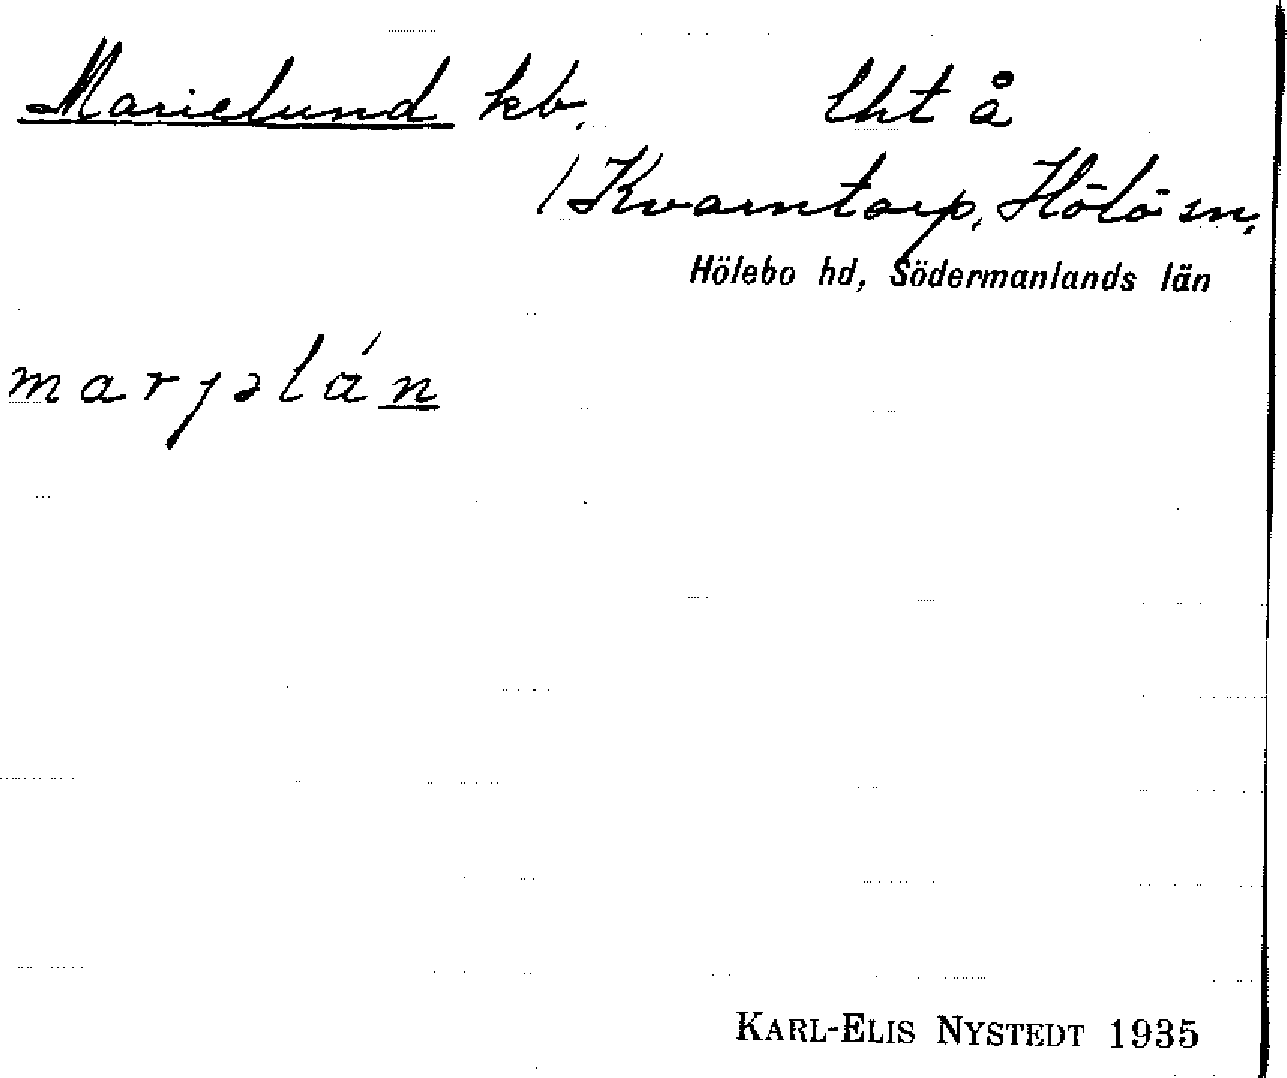 Marielund kb. Uht å
/ Kvarntorp, Hölö sn,
Hölebo hd, Södermanlands län
marjəlán
KARL-ELIS NYSTEDT 1935